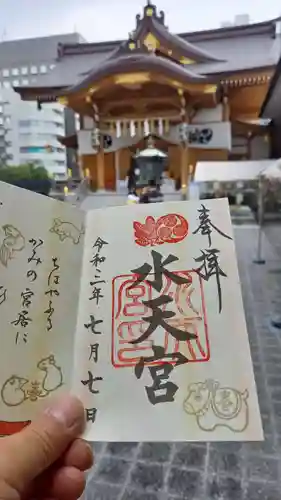 奉拝
水天宮
令和二年七月七日
ちはやぶる
かみの宮居に